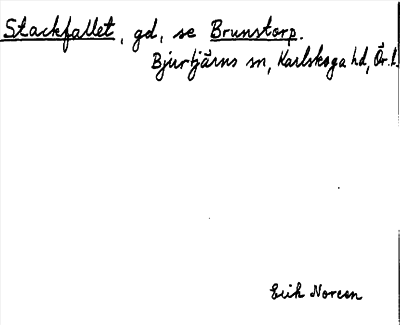 Stackfallet, gd, se Brunstorp.
Bjurtjärns sn, Karlskoga hd, Ör. l.
Erik Noreen